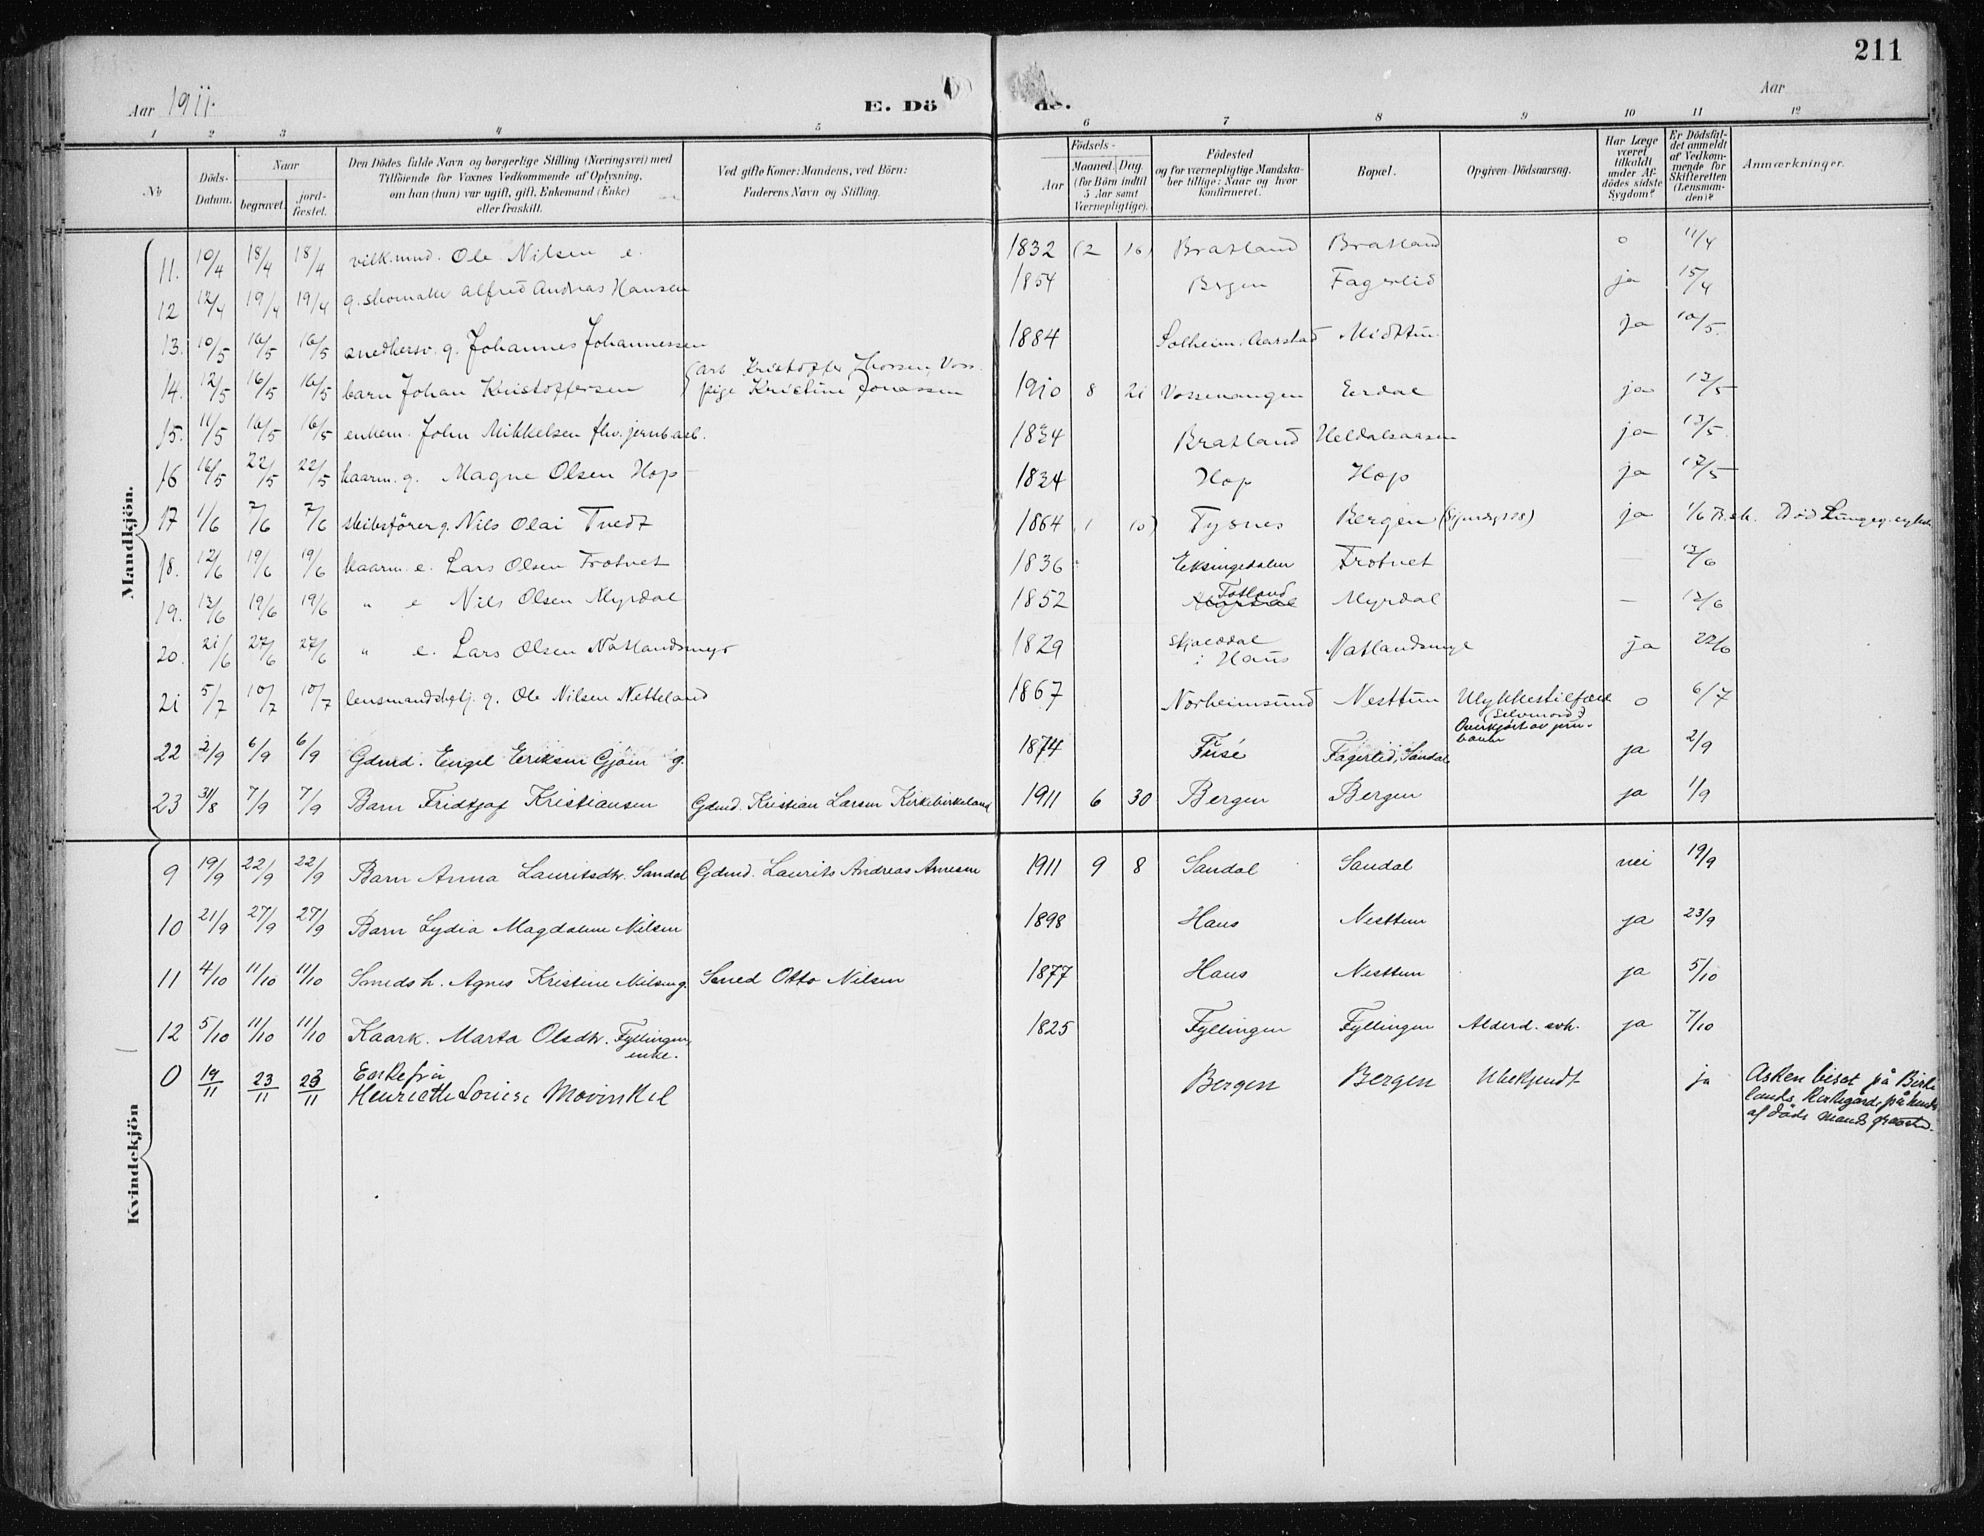 211
Aar 1911.
E. Dö de.
Aar
1 2 3 4 5 6 7 8 9 10 11 12
No
Döds-Datum.
Naar
begravet.
jord-fæstet.
Den Dödes fulde Navn og borgerlige Stilling (Næringsvei) med
Tilföiende for Voxnes Vedkommende af Oplysning,
om han (hun) var ugift, gift, Enkemand (Enke)
eller fraskilt.
Ved gifte Koner: Mandens, ved Börn:
Faderens Navn og Stilling.
Födsels-
Aar
Maaned. Dag.
(for Börn indtil
5 Aar samt
Værnepligtige).
Födested
og for værnepligtige Mandsku-
ber tillige: Naar og hvor
konfirmeret.
Bopæl.
Opgiven Dödsaarsag.
Har Læge
været
tilkaldt
under Af-
dödes sidste
Sygdom?
Er Dödsfal-
det anmeldt
af Vedkom-
mende for
Skifteretten
(Lensman-
den)?
Anmærkninger.
Mandkjön.
11. 10/4 18/4 18/4 Ole Nilsen e. 1832 (2 16) Bratland Bratland o 11/4
12 12/4 19/4 19/4 g. skomaker Alfred Andreas Hansen 1854 Bergen Fagerlid ja 15/4
13. 10/5 16/5 16/5 g. Johannes Johannessen 1884 Solheim. Aarstad Midttun ja 10/5.
14. 12/5 16/5 16/5 barn Johan Kristoffersen (arb Kristoffer Thorsen, Voss.
pige Kristine Jonassen 1910 8 21 Vossevangen Eerdal ja 13/5
15. 11/5 16/5 16/5 enkem. John Mikkelsen fhv. jernb.arb. 1834 Bratland Heldalsaasen ja 13/5.
16 16/5 22/5 22/5 kaarm. g. Magne Olsen Hop 1834 Hop Hop ja 17/5
17 1/6 7/6 7/6 skibsförer g. Nils Olai Tvedt 1864 1 10) Tysnes Bergen ja 1/6 Död
18. 12/6 19/6 19/6 kaarm. e. Lars Olsen Frotvet 1836 Eksingedalen Frotvet — 13/6
19. 13/6 19/6 19/6 " e Nils Olsen Myrdal 1852 Totland Myrdal — 13/6
20. 21/6 27/6 27/6 " e. Lars Olsen Natlandsmyr 1829 Skjoldal
i Haus Natlandsmyr ja 22/6
21 5/7 10/7 10/7 g. Ole Nilsen Netteland 1867 Norheimsund Nesttun Ulykkestilfæld
(Selvmord)
Overkjört av jern-
banen o 6/7
22 2/9 6/9 6/9 Gdmd. Engel Eriksen Gjöen g. 1874 Fusé Fagerlid, Sandal ja 2/9
23 31/8 7/9 7/9 Barn Fridtjof Kristiansen Gdmd. Kristian Larsen Kirkebirkeland 1911 6 30 Bergen Bergen ja 1/9
Kvindekjön
9 19/9 22/9 22/9 Barn Anna Lauritsdtr. Sandal Gdmd. Laurits Andreas Arnesen 1911 9 8 Sandal Sandal nei 19/9
10 21/9 27/9 27/9 Barn Lydia Magdalene Nilsen 1898 Haus Nesttun ja 23/9
11 4/10 11/10 11/10 Smeds h. Agnes Kristine Nilsen g. Smed Otto Nilsen 1877 Haus Nesttun ja 5/10
12 5/10 11/10 11/10 Kaark. Marta Olsdtr. Fyllingen,
enke. 1825 Fyllingen Fyllingen Alderd. svk. ja 7/10
0 19/11 23/11 23/11 Enkefru
Henriette Louise Mowinkel Bergen Bergen Ubekjendt ja Asken bisat på Birke
lands Kirkegård, på hendes
afdöde mands gravsted.